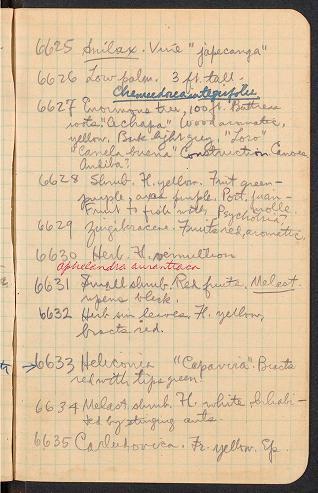 6625 Smilax. Vine "japecanga"
6626 Low palm. 3 ft. tall.
Chamaedorea integrifolia
6627 Enormous tree, 100 ft. Buttress
roots. "Achapa" (wood aromatic,
yellow. Bark light grey "Loro"
"Canela buena" Construction Canoes
Aniba?
6628 Shrub. Fl. yellow. Fruit green-
purple, purple. Poct. juan-
Fruit to fish with, Psychotria?
6629 Zingiberaceae. Fruits red, aromatic.
6630 Herb. Fl. vermillion
aphelandra aurantiaca
6631 Small shrub. Red fruits. Melast.
ripens black.
6632 Herb leaves. Fl. yellow,
bracts red.
6633 Heliconia "Capavira". Bracts
red with tips green.
6634 Melast. shrub. Fl. white. Inhabi-
ted by stinging ants.
6635 Carludovica. Fr. yellow. Ep.